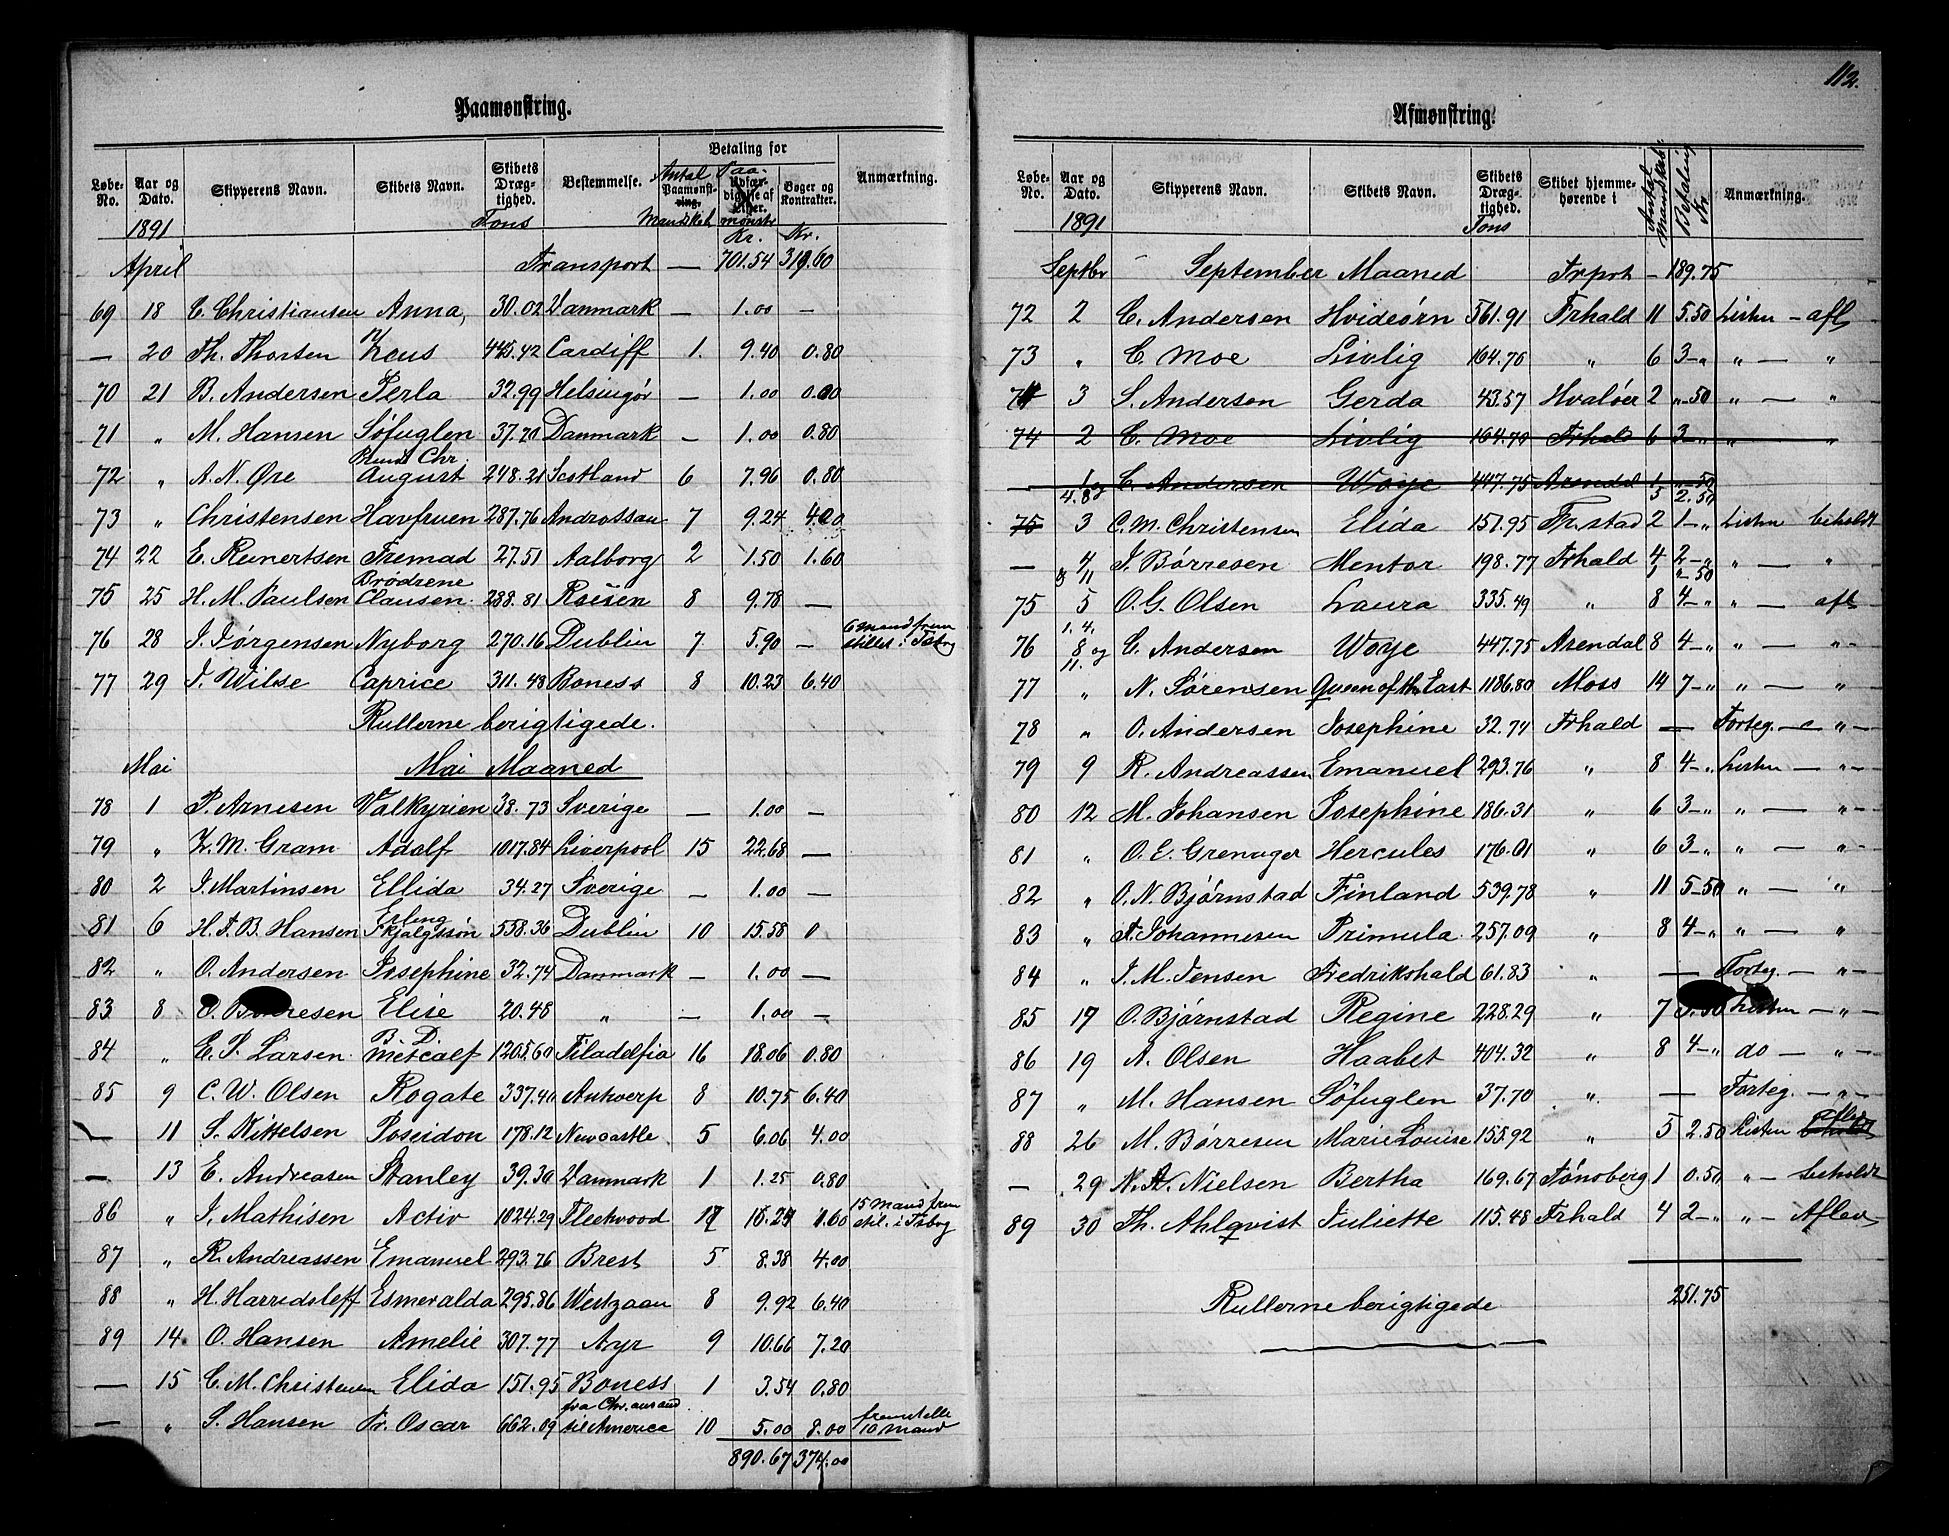 112.
Paamønstring.
Løbe-No. Aar og Dato. Skipperens Navn. Skibets Navn. Skibets Dræg-tighed. Bestemmelse. Antal Paamønst-ring. Mandskab Betaling for Paa- mønstr Udfær-digelse af Lister. Bøger og Kontrakter. Anmærkning.
1891 Tons Kr. Kr.
April Transport — 701.54 319.60
69 18 C. Christiansen Anna, 30.02 Danmark — 1.00 —
— 20 Th. Thorsen Zeus 445.42 Cardiff 1. 9.40 0.80
70 21 B. Andersen Perla 32.99 Helsingør — 1.00 0.00
71 „ M. Hansen Søfuglen 37.70 Danmark — 1.00 0.80
72 „ A. N. Øre Prinds Chr. August 248.21 Scotland 6 7.96 0.80
73 „ Christensen Havfruen 287.76 Androssau 7 9.24 4.00
74 22 E. Reinertsen Fremad 27.51 Aalborg 2 1.50 1.60
75 25 H. M. Paulsen Brödrene Clausen. 288.81 Roüen 8 9.78 —
76 28 J. Jørgensen Nyborg 270.16 Dublin 7 5.90 — 6 mand frem stillet i Tøbog
77 29 J. Wilse Caprice 311.48 Boness 8 10.23 6.40
Rullerne berigtigede.
Mai Mai Maaned
78 1 P. Arnesen Valkyrien 38.73 Sverige — 1.00 —
79 „ Z. M. Gram Adolf 1017.84 Liverpool 15 22.68 —
80 2 J. Martinsen Ellida 34.27 Sverige — 1.00 —
81 6 H. F. B. Hansen Erling Skjalgssön 558.36 Dublin 10 15.58 0
82 „ O. Andersen Josephine 32.74 Danmark — 1.00 —
83 8 O. Børresen Elise 20.48 „ — 1.00 —
84 „ E. P. Larsen B. D. Metcalf 1205.60 Filadelfia 16 18.06 0.80
85 9 C. W. Olsen Rogate 337.40 Antwerp 8 10.75 6.40
— 11 S. Kittelsen Poseidon 178.12 Newcastle 5 6.06 4.00
— 13 E. Andreasen Stanley 39.30 Danmark 1 1.25 0.80
86 „ J. Mathisen Activ 1024.29 Fleetwood 17 15.24 1.60 15 mand frem stil. i Tøbog
87 „ R. Andreassen Emanuel 293.76 Brest 5 8.38 4.00
88 „ H. Harridsleff Esmeralda 295.86 Westzaan 8 9.92 6.40
89 14. O. Hansen Amelie 307.77 Ayr 9 10.66 7.20
— 15 C. M. Christensen Elida 151.95 Boness 1 3.54 0.80
— „ S. Hansen Pr. Oscar 662.09 fra Chr.ansand til America 10 5.00 8.00 fremstelle 10 mand
890.67 374.00
Afmønstring.
Løbe-No. Aar og Dato. Skipperens Navn. Skibets Navn. Skibets Dræg-tighed. Skibet hjemme-hørende i Antal Mandskab Betaling Kr Anmærkning.
1891 Tons
Septbr September Maaned Trprt — 189.75
72 2 C. Andersen Hvideørn 561.91 Frhald 11 5.50 Listen — afl
73 „ C. Moe Livlig 164.70 „ 6 3-„ „ — „
74 3 S. Andersen Gerda 43.57 Hvaløer 2 „-50 „ — „
74 2 C. Moe Livlig 164.70 Frhald 6 3-„ „ „
— 1 C. Andersen Woye 447.75 Arendal 1 „-50
4.8 og 5 2.50
75 3 C. M. Christensen Elida 151.95 Fr.stad 2 1-„ Listen beholdt
— 4/ & 11 J. Børresen Mentor 198.77 Frhald 4 2-„ 1 „-50 „ — „
75 5 O. G. Olsen Laura 335.49 „ 8 4-„ „ — afl
76 1. 4. 8 og 11. C. Andersen Woye 447.75 Arendal 8 4-„ „ — „ —
77 „ N. Sørensen Queen of the East 1186.80 Moss 14 7-„ „ — „
78 „ O. Andersen Josephine 32.74 Frhald — Forteg. — „ —
79 9 R. Andreassen Emanuel 293.76 „ 8 4-„ Listen — „ —
80 12 M. Johansen Josephine 186.31 „ 6 3-„ „ — „ —
81 „ O. E. Grenager Hercules 176.01 „ 6 3-„ „ — „ —
82 „ O. N. Bjørnstad Finland 539.78 „ 11 5-50 „ — „ —
83 „ A. Johannesen Primula 257.09 „ 8 4-„ „ — „
84 „ J. M. Jensen Fredrikshald 61.83 „ — Forteg. — „ —
85 17 O. Bjørnstad Regine 228.29 „ 7 3.50 Listen — „ —
86 19 N. Olsen Haabet 404.32 „ 8 4-„ do — „ —
87 „ M. Hansen Søfuglen 37.70 „ — Forteg. — „ —
88 26 M. Børresen Marie Louise 155.92 „ 5 2.50 Listen beholdt aflev
— 29 N. A. Nielsen Bertha 169.67 Tønsberg 1 0.50 „ — beholdt
89 30 Th. Ahlqvist Juliette 115.48 Frhald 4 2-„ „ — Aflev
251.75
Rullerne berigtigede